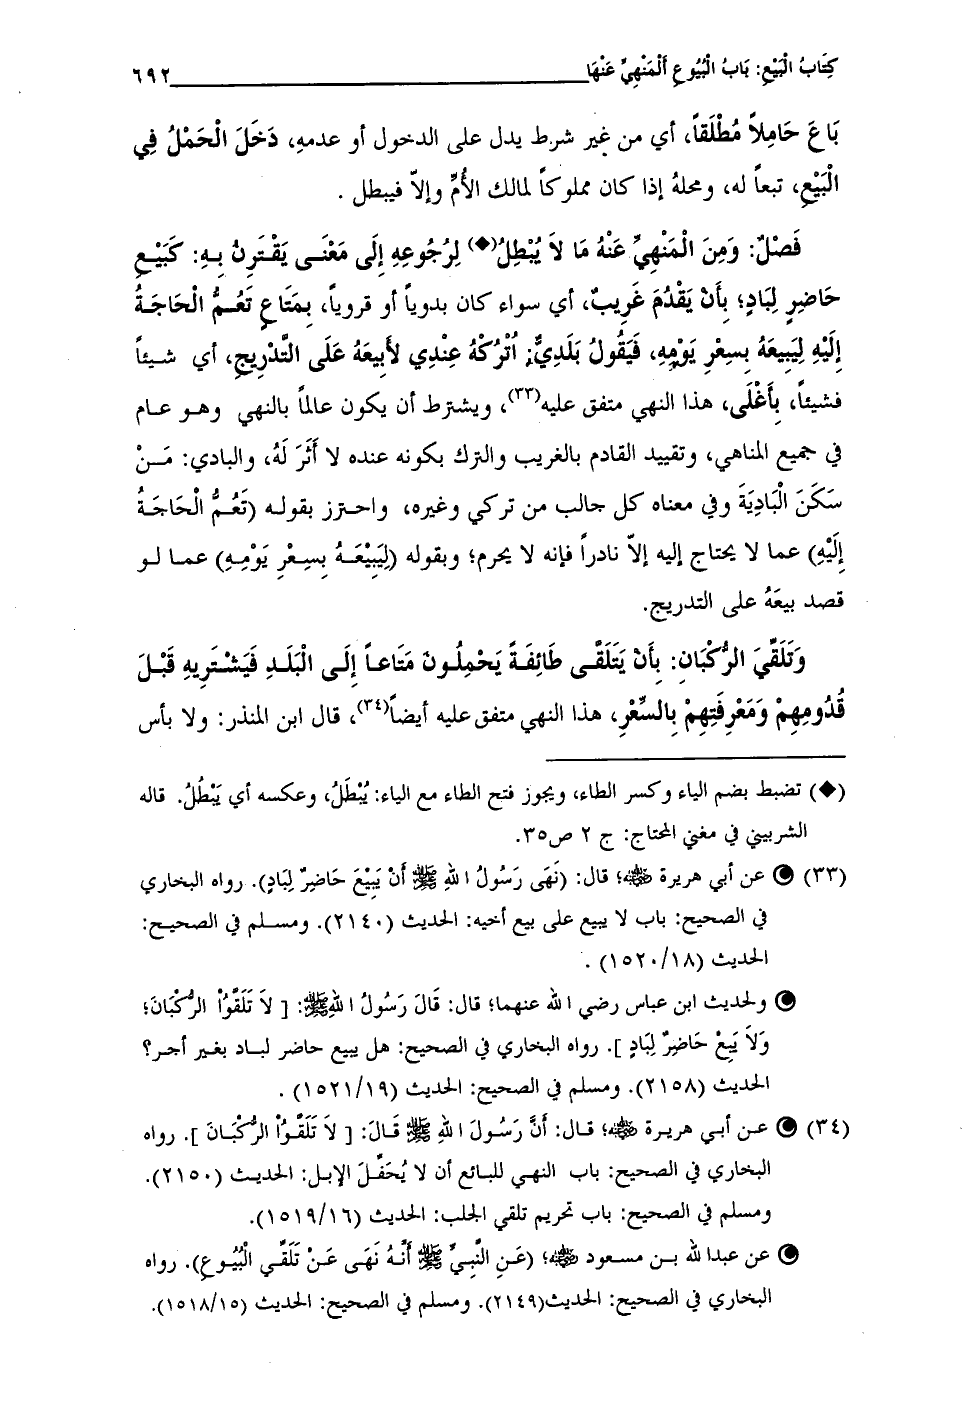 كِتَابُ الْبَيْعِ: بَابُ الْبُيُوعِ اَلْمَنْهِيِّ عَنْهَا ٦٩٢
بَاعَ حَامِلاً مُطْلَقاً، أي من غير شرط يدل على الدخول أو عدمهِ، دَخَلَ الْحَمْلُ فِي
الْبَيْعِ، تبعاً له، ومحلهُ إذا كان مملوكاً لمالك الأُمِّ وإلاّ فيبطل .
فَصْلٌ: وَمِنَ الْمَنْهِيِّ عَنْهُ مَا لاَ يُبْطِلُ(◆) لِرُجُوعِهِ إِلَى مَعْنَى يَقْتَرِنُ بِهِ: كَبَيْعِ
حَاضِرٍ لِبَادٍ؛ بِأَنْ يَقْدُمَ غَرِيبٌ، أي سواء كان بدوياً أو قروياً، بِمَتَاعٍ تَعُمُّ الْحَاجَةُ
إِلَيْهِ لِيَبِيعَهُ بِسِعْرِ يَوْمِهِ، فَيَقُولُ بَلَدِيٌّ: اُتْرُكْهُ عِنْدِي لأَبِيعَهُ عَلَى التَّدْرِيجِ، أي شيئاً
فشيئاً، بِأَغْلَى، هذا النهي متفق عليه(٣٣)، ويشترط أن يكون عالماً بالنهي وهو عام
في جميع المناهي، وتقييد القادم بالغريب والترك بكونه عنده لا أَثَرَ لَهُ، والبادي: مَنْ
سَكَنَ الْبَادِيَةَ وفي معناه كل جالب من تركي وغيره، واحترز بقوله (تَعُمُّ الْحَاجَةُ
إِلَيْهِ) عما لا يحتاج إليه إلاّ نادراً فإنه لا يحرم؛ وبقوله (لِيَبِيْعَهُ بِسِعْرِ يَوْمِهِ) عما لو
قصد بيعَهُ على التدريج.
وَتَلَقِّيَ الرُّكْبَانِ: بِأَنْ يَتَلَقَّى طَائِفَةً يَحْمِلُونَ مَتَاعاً إِلَى الْبَلَدِ فَيَشْتَرِيهِ قَبْلَ
قُدُومِهِمْ وَمَعْرِفَتِهِمْ بِالسِّعْرِ، هذا النهي متفق عليه أيضاً(٣٤)، قال ابن المنذر: ولا بأس
(◆) تضبط بضم الياء وكسر الطاء، ويجوز فتح الطاء مع الياء: يُبْطَلُ، وعكسه أي يَبْطُلُ. قاله
الشربيني في مغني المحتاج: ج ٢ ص٣٥.
(٣٣) عن أبي هريرة ﷺ؛ قال: (نَهَى رَسُولُ اللهِ ﷺ أَنْ يَبِيْعَ حَاضِرٌ لِبَادٍ). رواه البخاري
في الصحيح: باب لا يبيع على بيع أخيه: الحديث (٢١٤٠). ومسلم في الصحيح:
الحديث (١٥٢٠/١٨) .
ولحديث ابن عباس رضي الله عنهما؛ قال: قَالَ رَسُولُ اللهِ ﷺ: [ لاَ تَلَقَّوُاْ الرُّكْبَانَ؛
وَلاَ يَبِعْ حَاضِرٌ لِبَادٍ ]. رواه البخاري في الصحيح: هل يبيع حاضر لباد بغير أجر؟
الحديث (٢١٥٨). ومسلم في الصحيح: الحديث (١٥٢١/١٩) .
(٣٤) عن أبي هريرة ﷺ؛ قال: أَنَّ رَسُولَ اللهِ ﷺ قَالَ: [ لاَ تَلَقَّوُاْ الرُّكْبَانَ ]. رواه
البخاري في الصحيح: باب النهي للبائع أن لا يُحَفِّلَ الإبل: الحديث (٢١٥٠).
ومسلم في الصحيح: باب تحريم تلقي الجلب: الحديث (١٥١٩/١٦).
عن عبدالله بن مسعود ﷺ؛ (عَنِ النَّبِيِّ ﷺ أَنَّهُ نَهَى عَنْ تَلَقِّي الْبُيُوعِ). رواه
البخاري في الصحيح: الحديث(٢١٤٩). ومسلم في الصحيح: الحديث (١٥١٨/١٥).